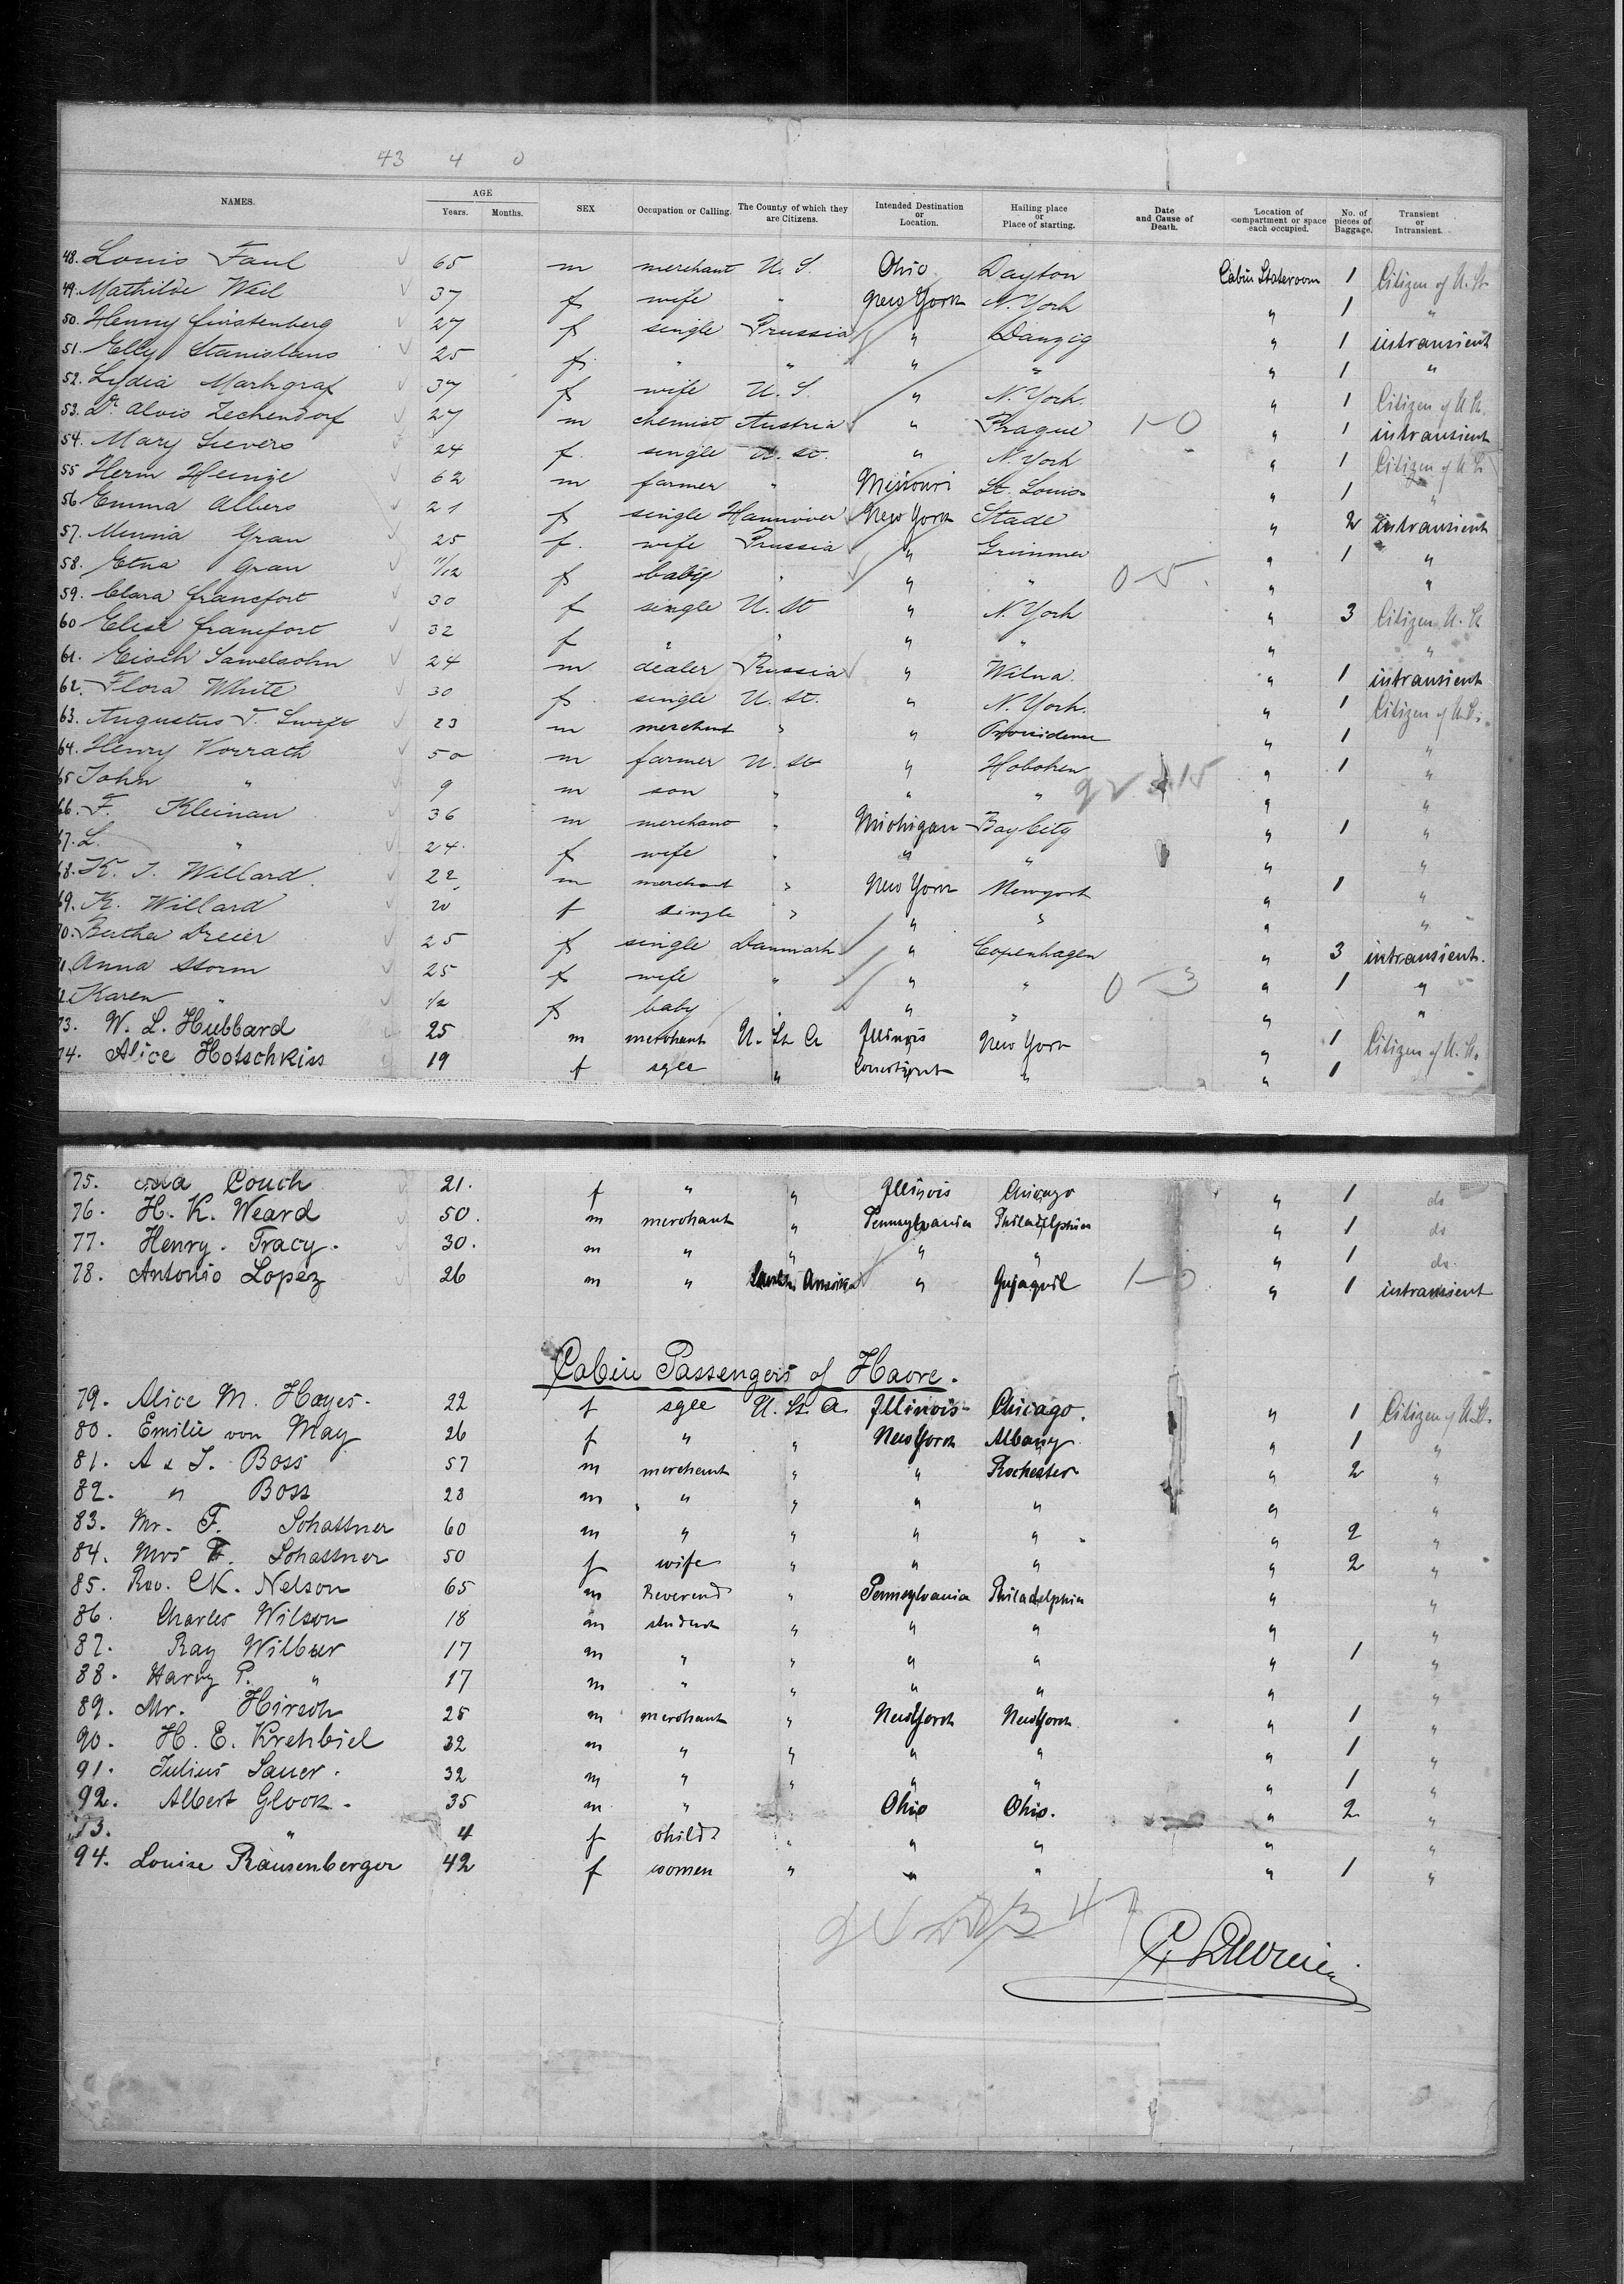 43 4 0
NAMES. AGE Years. Months. SEX Occupation or Calling. The County of which they are Citizens. Intended Destination or Location. Hailing place or Place of starting. Date and Cause of Death. Location of compartment or space each occupied. No. of pieces of Baggage. Transient or Intransient.
48. Louis Faul 65 m merchant U. S. Ohio Dayton Cabin Stateroom 1 Citizen of U. St.
49. Mathilde Weil 37 f wife " New York N. York " 1 "
50. Henny Fürstenberg 27 f single Prussia " Danzig " 1 intransient
51. Elly Stanislaus 25 f. " " " " " 1 "
52. Lydia Markgraf 37 f wife U. S. " N. York. " 1 Citizen of U St.
53. Dr. Alois Zechendorf 27 m chemist Austria " Prague 1-0 " 1 intransient
54. Mary Sievers 24 f. single U. St. " N. York " 1 Citizen of U St
55 Herm Heinze 62 m farmer " Missouri St. Louis " 1 "
56 Emma Albers 21 f single Hannover New York Stade " 2 intransient
57. Minna Grau 25 f. wife Prussia " Grimmen " 1 "
58. Etna Grau 11/12 f baby " " " 0-5. " "
59. Clara Francfort 30 f single U. St " N. York " 3 Citizen U. St
60 Elise Francfort 32 f " " " " " "
61. Eisch Sawelsohn 24 m dealer Russia " Wilna. " 1 intransient
62. Flora White 30 f. single U. St. " N. York. " 1 Citizen of U.St.
63. Augustus T. Swift 23 m merchant " " Providence " 1 "
64. Henry Vorrath 50 m farmer U. St " Hoboken " 1 "
65 John " 9 m son " " " " "
66. F. Kleinau 36 m merchant " Michigan Bay City " 1 "
67. L. " 24. f wife " " " " "
68. K. J. Willard. 22 m merchant " New York Newyork 1 "
69. K. Willard 20 f single " " " " "
70. Bertha Dreier 25 f single Danmark " Copenhagen " 3 intransient.
71. Anna Storm 25 f wife " " " 0-3 " 1 "
72. Karen " 1/2 f baby " " " " "
73. W. L. Hubbard 25 m merchant U. St. A Illinois New York 1 Citizen of U. St.
74. Alice Hotschkiss 19 f sgle " Conecticut " " 1
75. Couch 21. f " " Illinois Chicago " 1 do
76. H. K. Weard 50. m merchant " Pennsylvania Philadelphia " 1 do
77. Henry. Tracy. 30. m " " " " " 1 do
78. Antonio Lopez 26 m " South America " Gujaquil 1-0 " 1 intransient
Cabin Passengers of Havre.
79. Alice M. Hayes. 22 f sgle U. St. A. Illinois Chicago. " 1 Citizen of U.St.
80. Emilie von May 26 f " " New York Albany " 1 "
81. A & J. Boss 57 m merchant " " Rochester " 2 "
82. " Boss 28 m " " " " " "
83. Mr. F. Schattner 60 m " " " " " 2 "
84. Mrs F. Schattner 50 f wife " " " " 2 "
85. Rev. CK. Nelson 65 m Reverend " Pennsylvania Philadelphia " "
86. Charles Wilson 18 m student " " " " "
87. Ray Wilbur 17 m " " " " " 1 "
88. Harry P. " 17 m " " " " " "
89. Mr. Hirsch 25 m merchant " New York New York " 1 "
90. H. E. Krehbiel 32 m " " " " " 1 "
91. Julius Sauer. 32 m " " " " " 1 "
92. Albert Glock. 35 m " " Ohio Ohio. " 2 "
93. " 4 f child " " " " "
94. Louise Rausenberger 42 f women " " " " 1 "